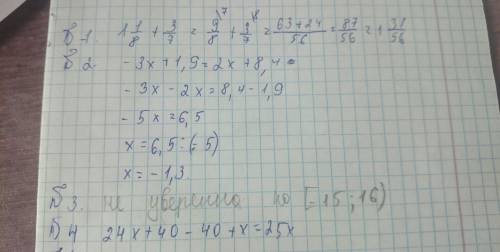 Б 1. 1 1/8 + 3/7 = 9/8 \7 + 3/7 \8 = 63+24/56 = 87/56 = 1 31/56
Б 2. -3x+1,9=2x+8,4
-3x-2x=8,4-1,9
-5x=6,5
x=6,5:(-5)
x=-1,3
Б 3. не уверенна но [-15;16)
Б 4 24x+40-40+x=25x